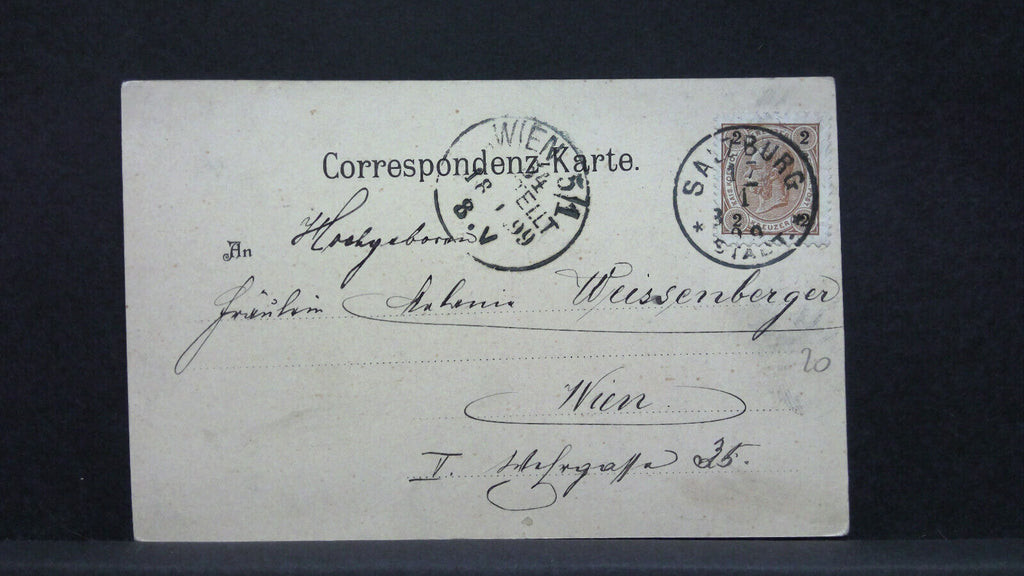 Correspondenz-Karte.
WIEN 5/1
BESTELLT
18 1 99
8.V
SALZBURG
STADT.
2 2
2 2
KREUZER
An Hochgeboren
Fräulein Melanie Weissenberger
Wien
V. Wehrgasse 35.
20